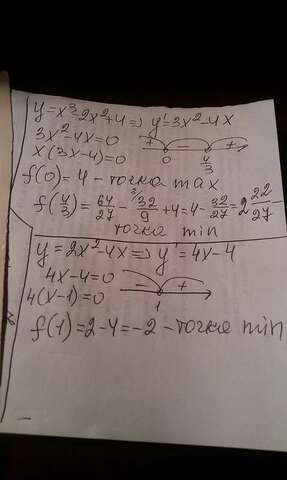 y=x³-2x²+4 ⇒ y'=3x²-4x
3x²-4x=0
+ - +
x(3x-4)=0
0 4/3
f(0)=4 - точка max
f(4/3)=64/27 - ³⁾32/9 +4=4- 32/27 =2 22/27 -
точка min
y=2x²-4x ⇒ y'=4x-4
4x-4=0
- +
4(x-1)=0
1
f(1)=2-4=-2 - точка min